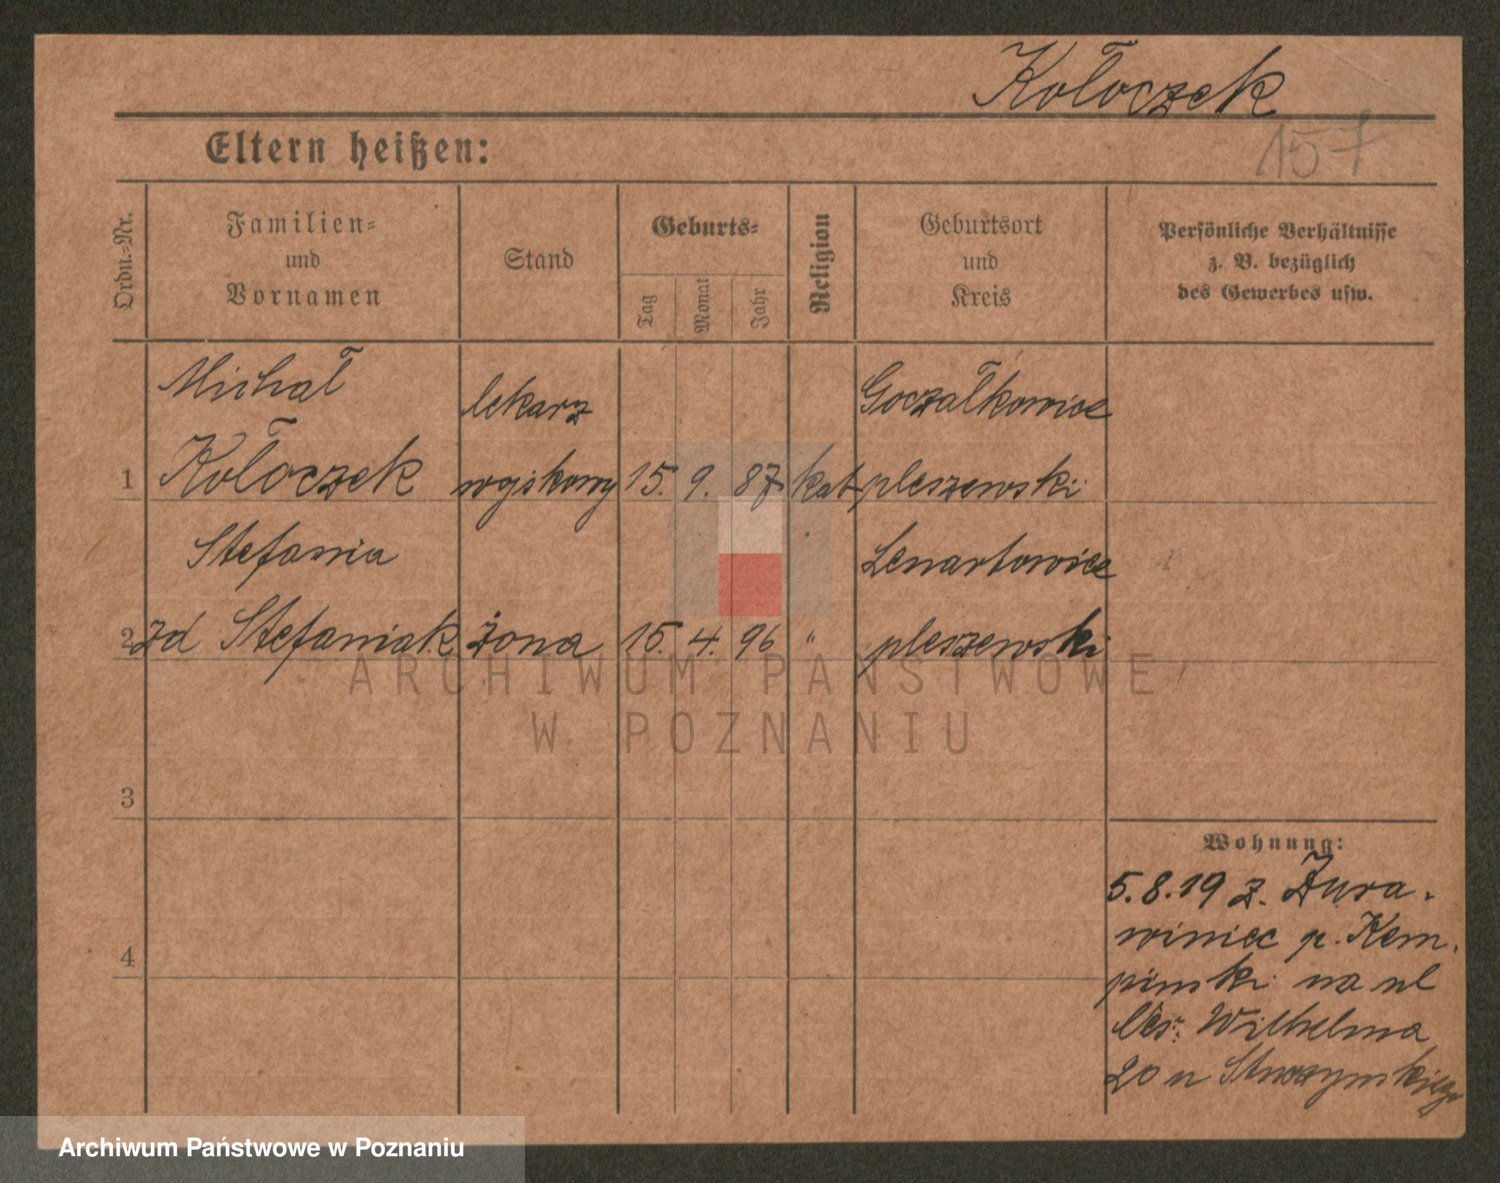 Kołoczek
157
Eltern heißen:
Ordn.-Nr.
Familien-
und
Vornamen
Stand
Geburts-
Tag
Monat
Jahr
Religion
Geburtsort
und
Kreis
Persönliche Verhältnisse
z. B. bezüglich
des Gewerbes usw.
Michał lekarz Goczałkowice
1 Kołoczek wojskowy 15. 9. 87 kat pleszewski
Stefania Lenartowice
2 zd Stefaniak żona 15. 4. 96 " pleszewski
ARCHIWUM PAŃSTWOWE
W POZNANIU
3
4
Wohnung:
5.8.19 z. Żura-
winiec p. Kem-
pinski na ul
Ces. Wilhelma
20 u
Archiwum Państwowe w Poznaniu